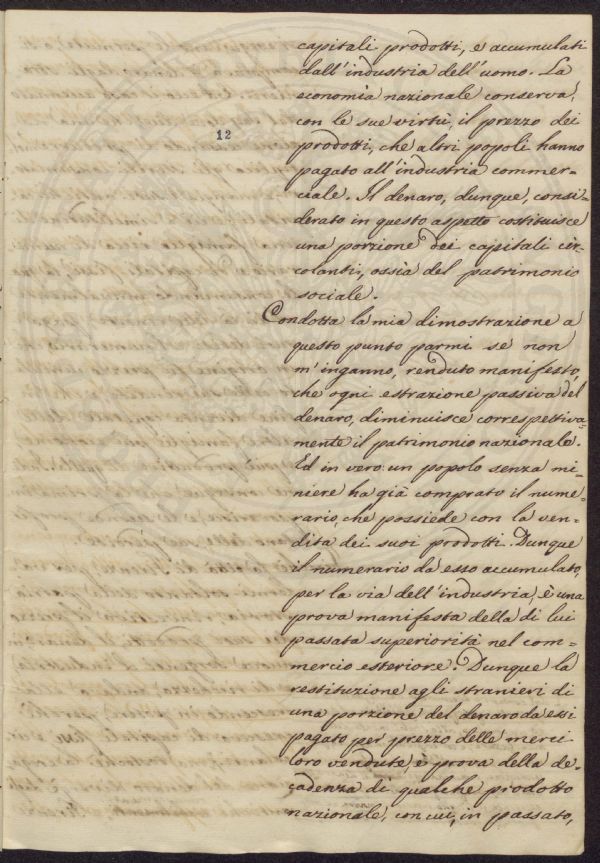 capitali prodotti, e accumulati
dall'industria dell'uomo. La
economia nazionale conserva,
con le sue virtù, il prezzo dei
12
prodotti, che altri popoli hanno
pagato all'industria commer-
ciale. Il denaro, dunque, consi-
derato in questo aspetto costituisce
una porzione dei capitali cir-
colanti, ossia del patrimonio
sociale.
Condotta la mia dimostrazione a
questo punto parmi se non
m'inganno, renduto manifesto,
che ogni estrazione passiva del
denaro, diminuisce correspettiva-
mente il patrimonio nazionale.
Ed in vero: un popolo senza mi-
niere ha già comprato il nume-
rario, che possiede con la ven-
dita dei suoi prodotti. Dunque
il numerario da esso accumulato,
per la via dell'industria, è una
prova manifesta della di lui
passata superiorità nel com-
mercio esteriore. Dunque la
restituzione agli stranieri di
una porzione del denaro da essi
pagato per prezzo delle merci
loro vendute, è prova della de-
cadenza di qualche prodotto
nazionale, con cui, in passato,